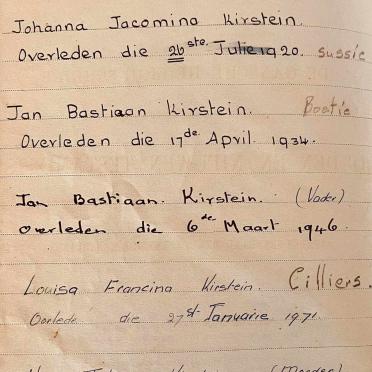 Johanna Jacomina Kirstein.
Overleden die 26ste. Julie 1920. Sussie
Jan Bastiaan Kirstein. Boetie
Overleden die 17de April. 1934.
Jan Bastiaan. Kirstein. (Vader)
Overleden die 6de Maart 1946.
Louisa Francina Kirstein. Cilliers.
Oorlede die 27st. Januarie 1971.